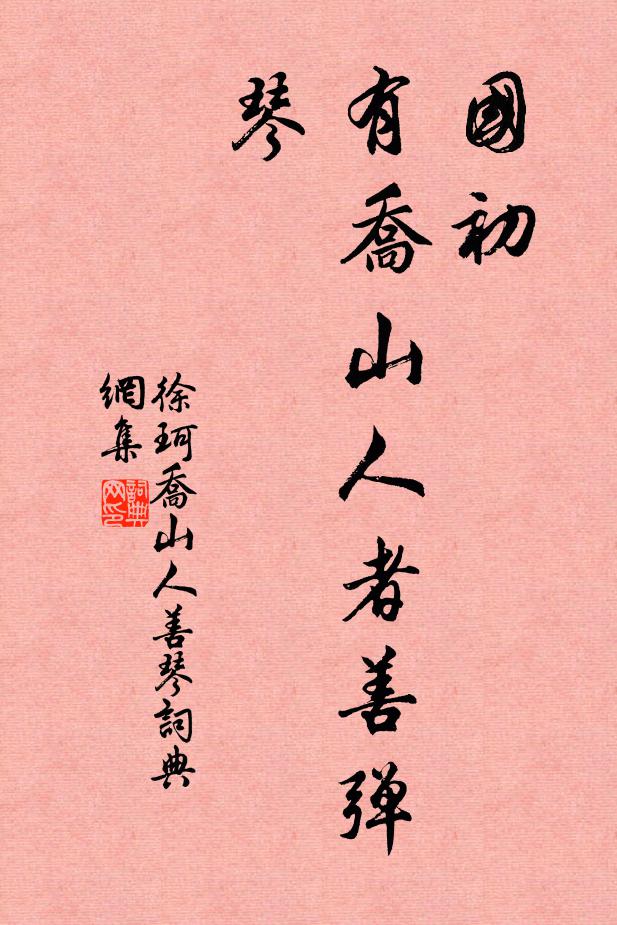 國初
有喬山人者善弹
琴
徐珂喬山人善琴詞典
網集
詞典
网印